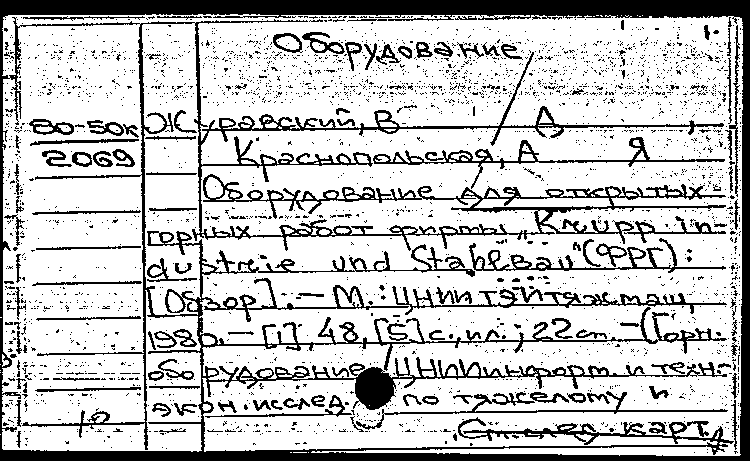 Оборудование
1.
80-50к Журавский, В Д ,
2069 Краснопольская, А Я
Оборудование для открытых
горных работ фирмы „Krupp in-
dustrie und Stahlbau" (ФРГ):
[Обзор]. — М.: ЦНИИТЭИтяжмаш,
1986. — [1], 48, [5] с., ил.; 22 см. — (Горн.
оборудование / ЦНИИинформ. и техн.-
экон. исслед. по тяжелому и
См. след. карт.